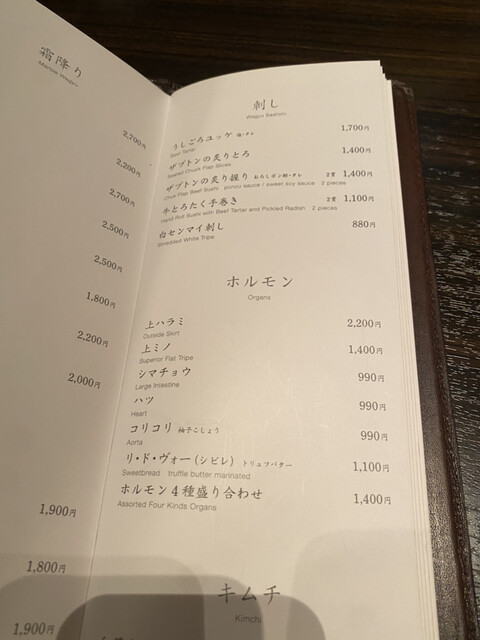 霜降り
Marble Wagyu
2,700円
2,200円
2,700円
2,500円
2,500円
1,800円
2,200円
2,000円
1,900円
1,800円
1,900円
刺し
Wagyu Sashimi
うしごろユッケ 塩・タレ 1,700円
Beef Tartar
ザブトンの炙りとろ 1,400円
Seared Chuck Flap Slices
ザブトンの炙り握り おろしポン酢・タレ 2貫 1,400円
Chuck Flap Beef Sushi ponzu sauce / sweet soy sauce 2 pieces
牛とろたく手巻き 2貫 1,100円
Hand Roll Sushi with Beef Tartar and Pickled Radish 2 pieces
白センマイ刺し 880円
Shredded White Tripe
ホルモン
Organs
上ハラミ 2,200円
Outside Skirt
上ミノ 1,400円
Superior Flat Tripe
シマチョウ 990円
Large Intestine
ハツ 990円
Heart
コリコリ 柚子こしょう 990円
Aorta
リ・ド・ヴォー(シビレ) トリュフバター 1,100円
Sweetbread truffle butter marinated
ホルモン4種盛り合わせ 1,400円
Assorted Four Kinds Organs
キムチ
Kimchi